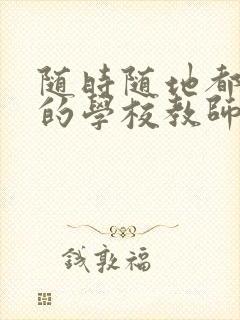 随時随地都
的學校教師
錢敦福